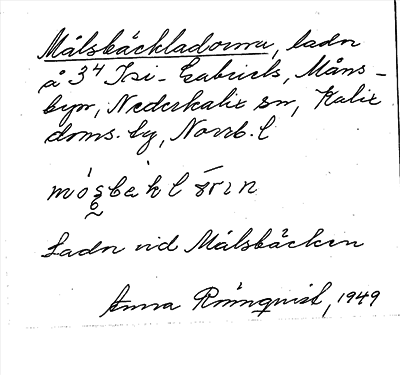 Målsbäckladorna, ladn
å 3⁴ Isi-Gabriels, Måns-
byn, Nederkalix sn, Kalix
doms. by, Norrb. l
Ladn vid Målsbäcken
Anna Rönnquist, 1949